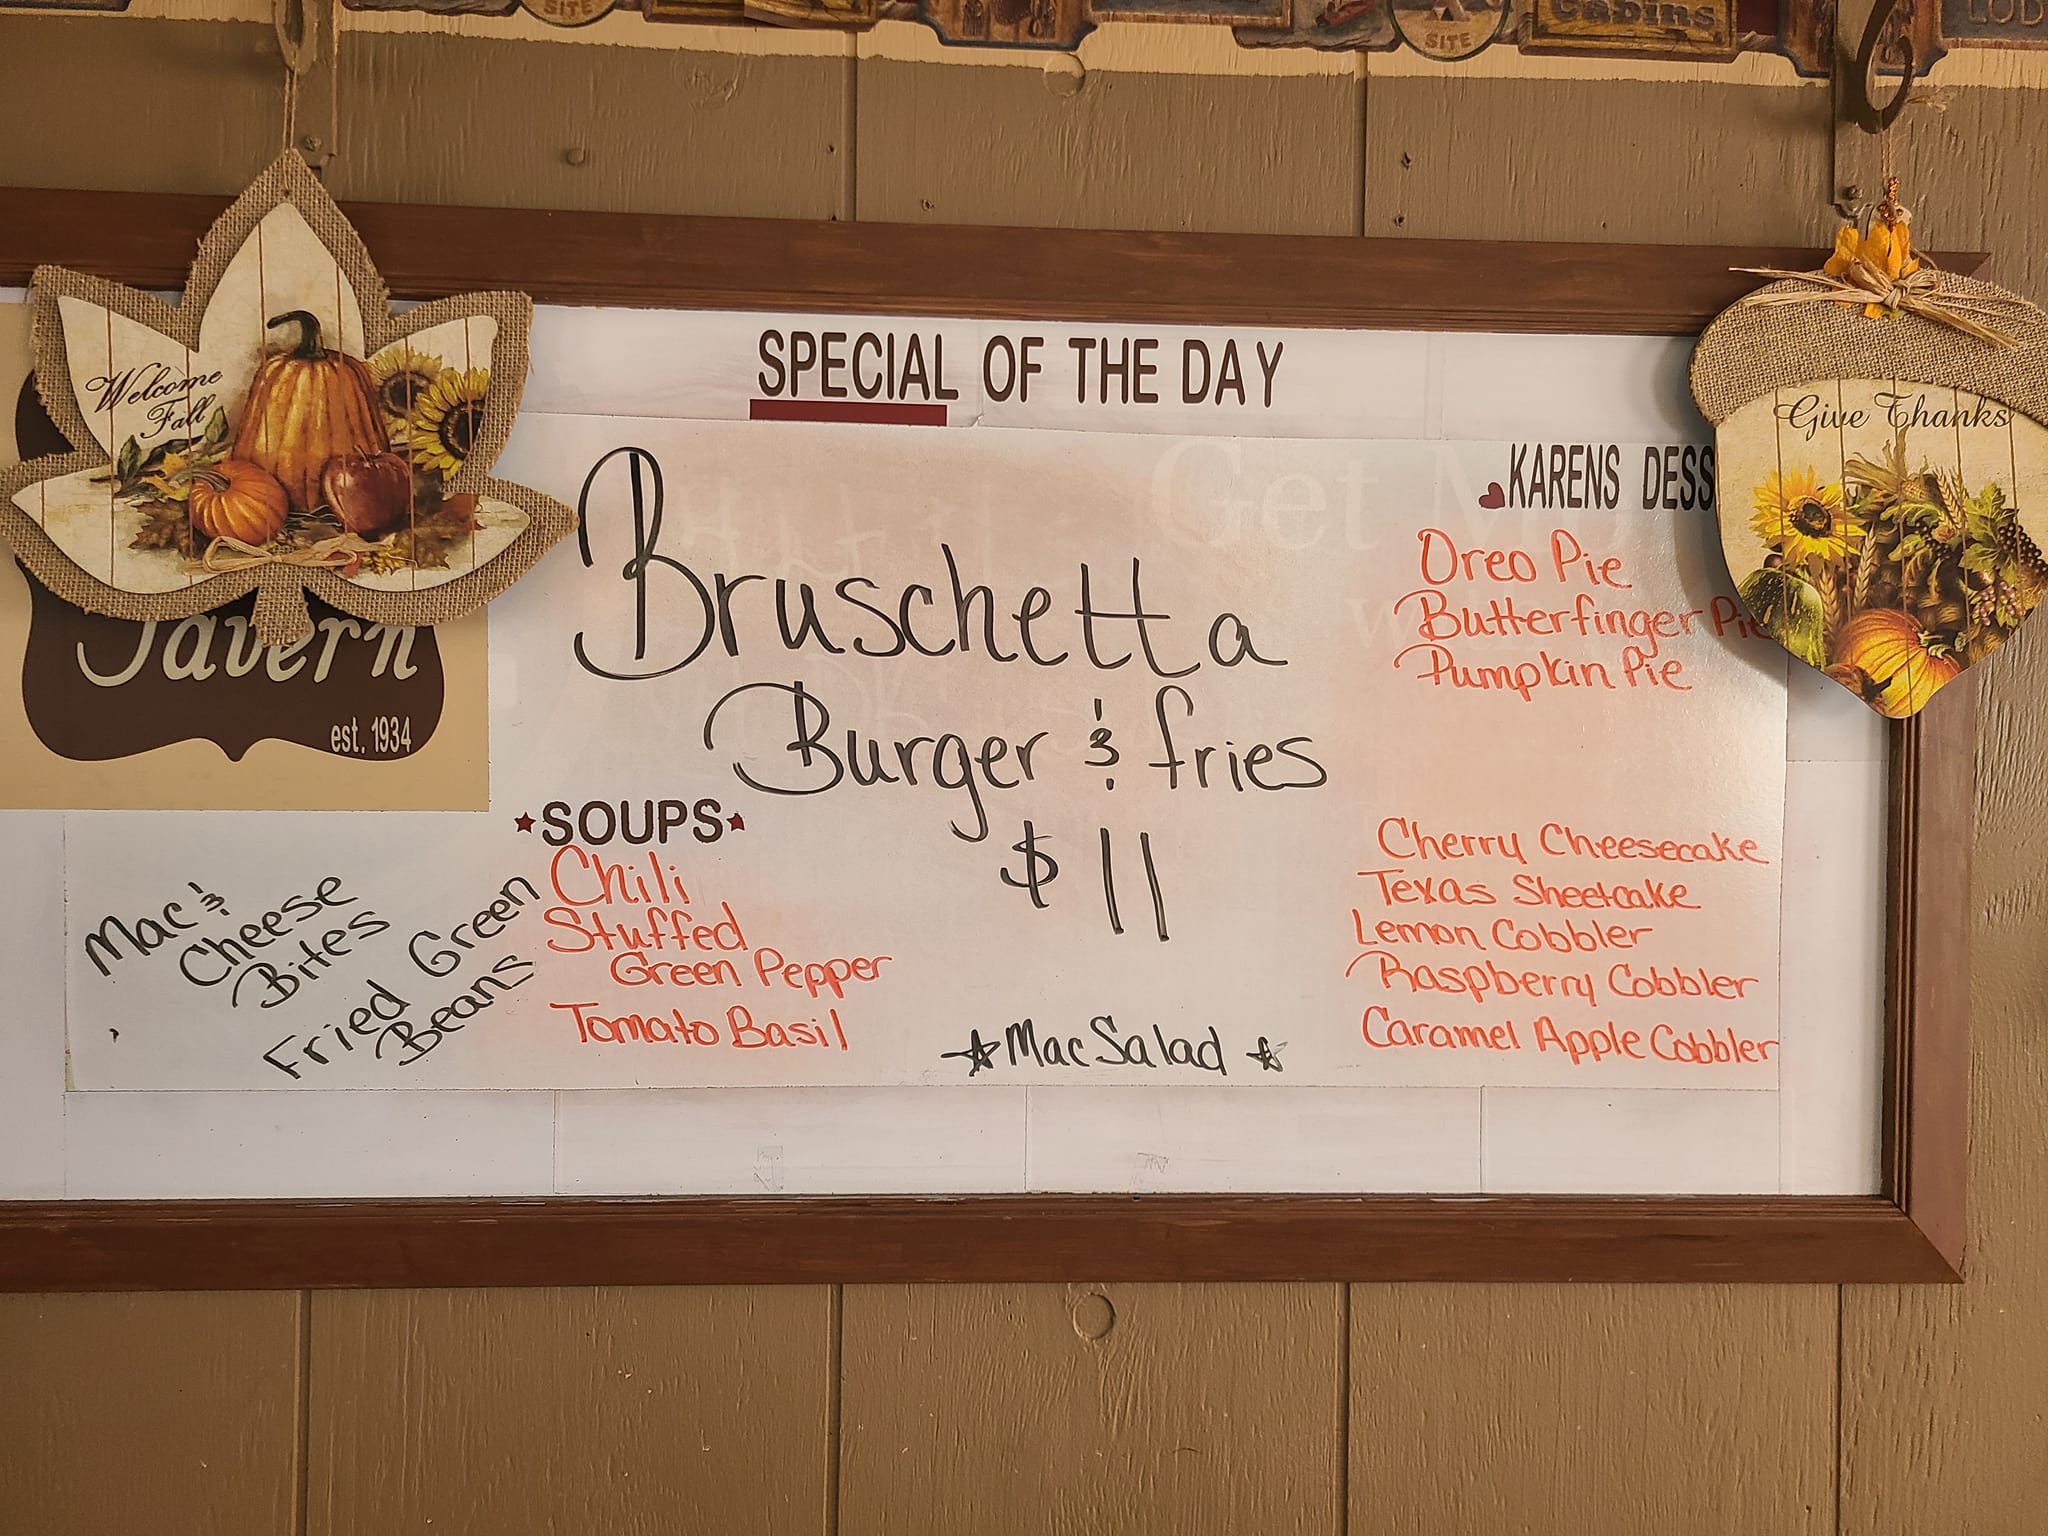 SITE
Cabins
SITE
LOD
Welcome
Fall
Give Thanks
Tavern
est. 1934
SPECIAL OF THE DAY
Bruschetta
Burger & fries
$11
★SOUPS★
Chili
Stuffed
Green Pepper
Tomato Basil
Mac &
Cheese
Bites
Fried Green
Beans
☆Mac Salad☆
♥KARENS DESS
Oreo Pie
Butterfinger Pie
Pumpkin Pie
Cherry Cheesecake
Texas Sheetcake
Lemon Cobbler
Raspberry Cobbler
Caramel Apple Cobbler
Get